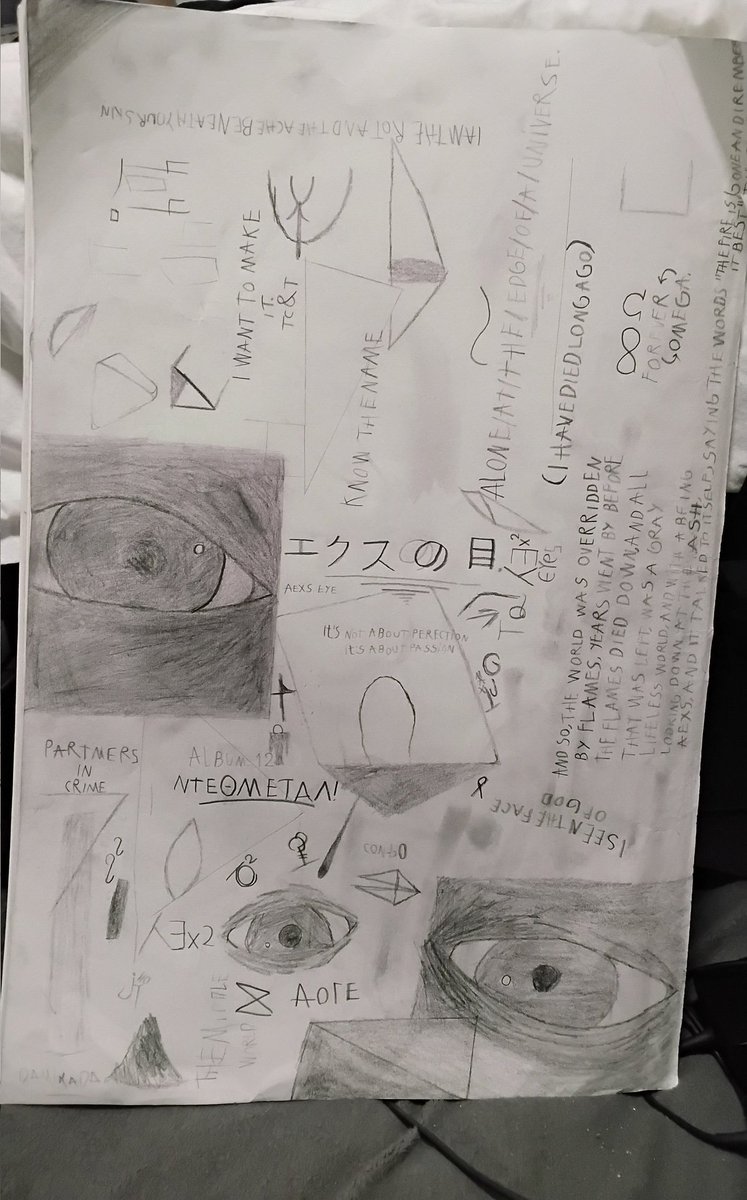 I AM THE ROT AND THE ACHE BENEATH YOUR SKIN
I WANT TO MAKE
IT.
TC&T
KNOW THE NAME
ALONE/AT/THE/EDGE/OF/A/UNIVERSE.
(I HAVE DIED LONG AGO)
∞ Ω
FOREVER
OMEGA.
エクスの目
AEXS EYE
EYES
IT'S NOT ABOUT PERECTION
IT'S ABOUT PASSION
AND SO, THE WORLD WAS OVERRIDDEN
BY FLAMES, YEARS WENT BY BEFORE
THE FLAMES DIED DOWN AND ALL
THAT WAS LEFT, WAS A GRAY
LIFELESS WORLD, AND WITH A BEING
LOOKING DOWN AT THE ASH,
AEXS. AND IT TALKED TO ITSELF, SAYING THE WORDS "THE FIRE IS
I SEEN THE FACE
OF GOD
PARTNERS
IN
CRIME
ALBUM 12
NTEΘMETAL!
Ǝx2
AOΓE